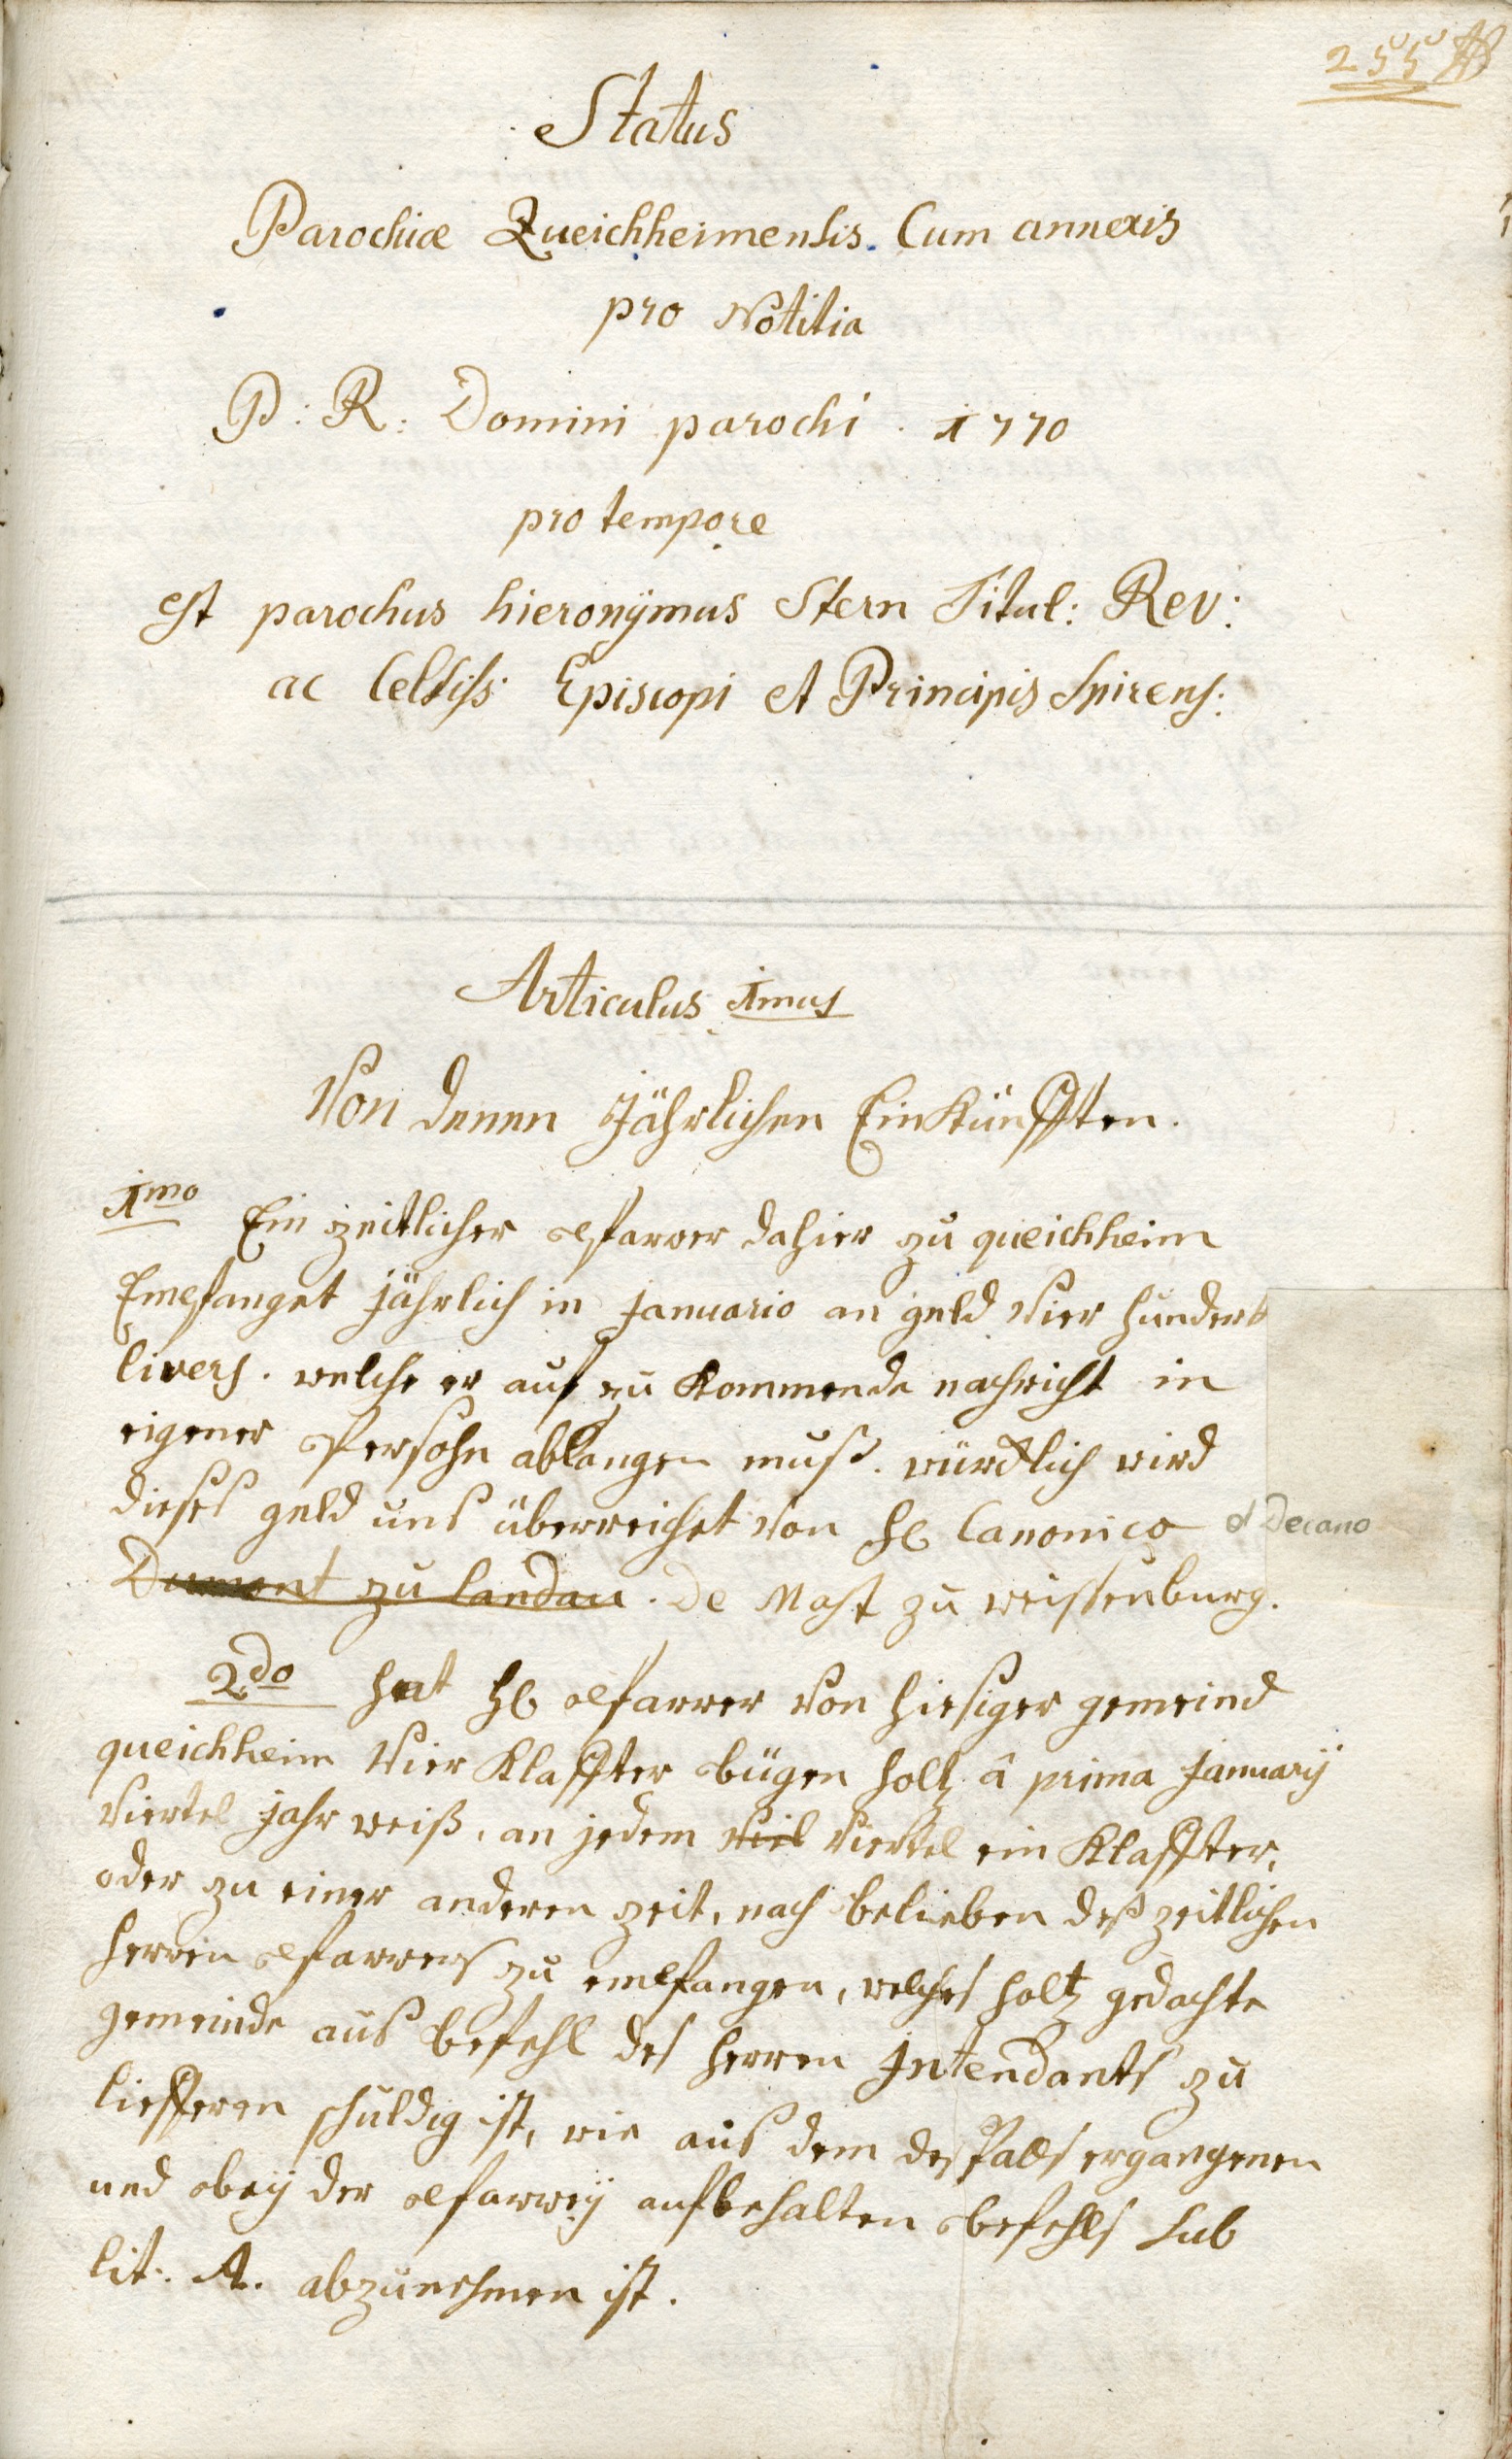 255
Status
Parochiæ Queichheimensis Cum annexis
pro Notitia
P: R: Domini parochi. 1770
pro tempore
est parochus hieronÿmus Stern Titul: Rev:
ac Celsiss: Episcopi et Principis Spirens:
Articulus 1mus
Von denen Jährlichen Einkünfften.
1mo Ein zeitlicher Pfarrer dahier zu queichheim
Empfanget jährlich in Januario an geld Vier hundert
livers. welche er auf zu kommende nachricht in
eigener Persohn ablangen muß. würcklich wird
dieses geld uns überreichet von H. Canonico et Decano
Dumont zu landau. De Mast zu weissenburg.
2do hat H. Pfarrer von hiesiger gemeind
queichheim Vier Klaffter bügen holtz â prima Januarÿ
Viertel jahr weiß, an jedem Viel Viertel ein Klaffter,
oder zu einer anderen zeit, nach belieben deß zeitlichen
herren Pfarrers zu empfangen, welches holtz gedachte
gemeinde aus befehl des herren Intendants zu
liefferen schuldig ist, wie aus dem desfals ergangenen
und beÿ der Pfarreÿ aufbehalten befehls sub
lit: A. abzunehmen ist.